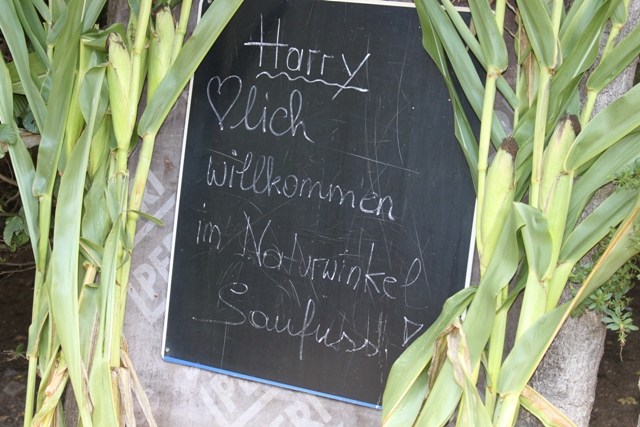 Harry
♡lich
willkommen
im Naturwinkel
Saufuss!